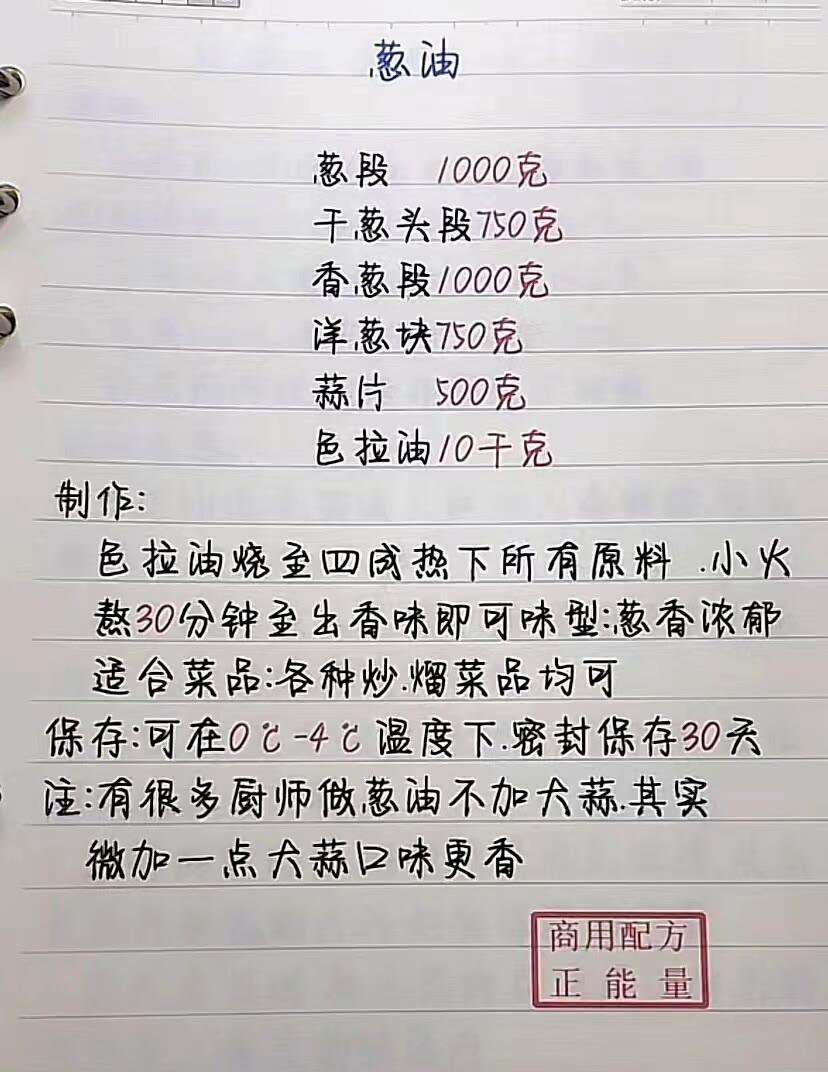 葱油
葱段 1000克
干葱头段750克
香葱段1000克
洋葱块750克
蒜片 500克
色拉油10千克
制作:
色拉油烧至四成热下所有原料.小火
熬30分钟至出香味即可味型:葱香浓郁
适合菜品:各种炒.熘菜品均可
保存:可在0℃-4℃温度下.密封保存30天
注:有很多厨师做葱油不加大蒜.其实
微加一点大蒜口味更香
商用配方
正能量